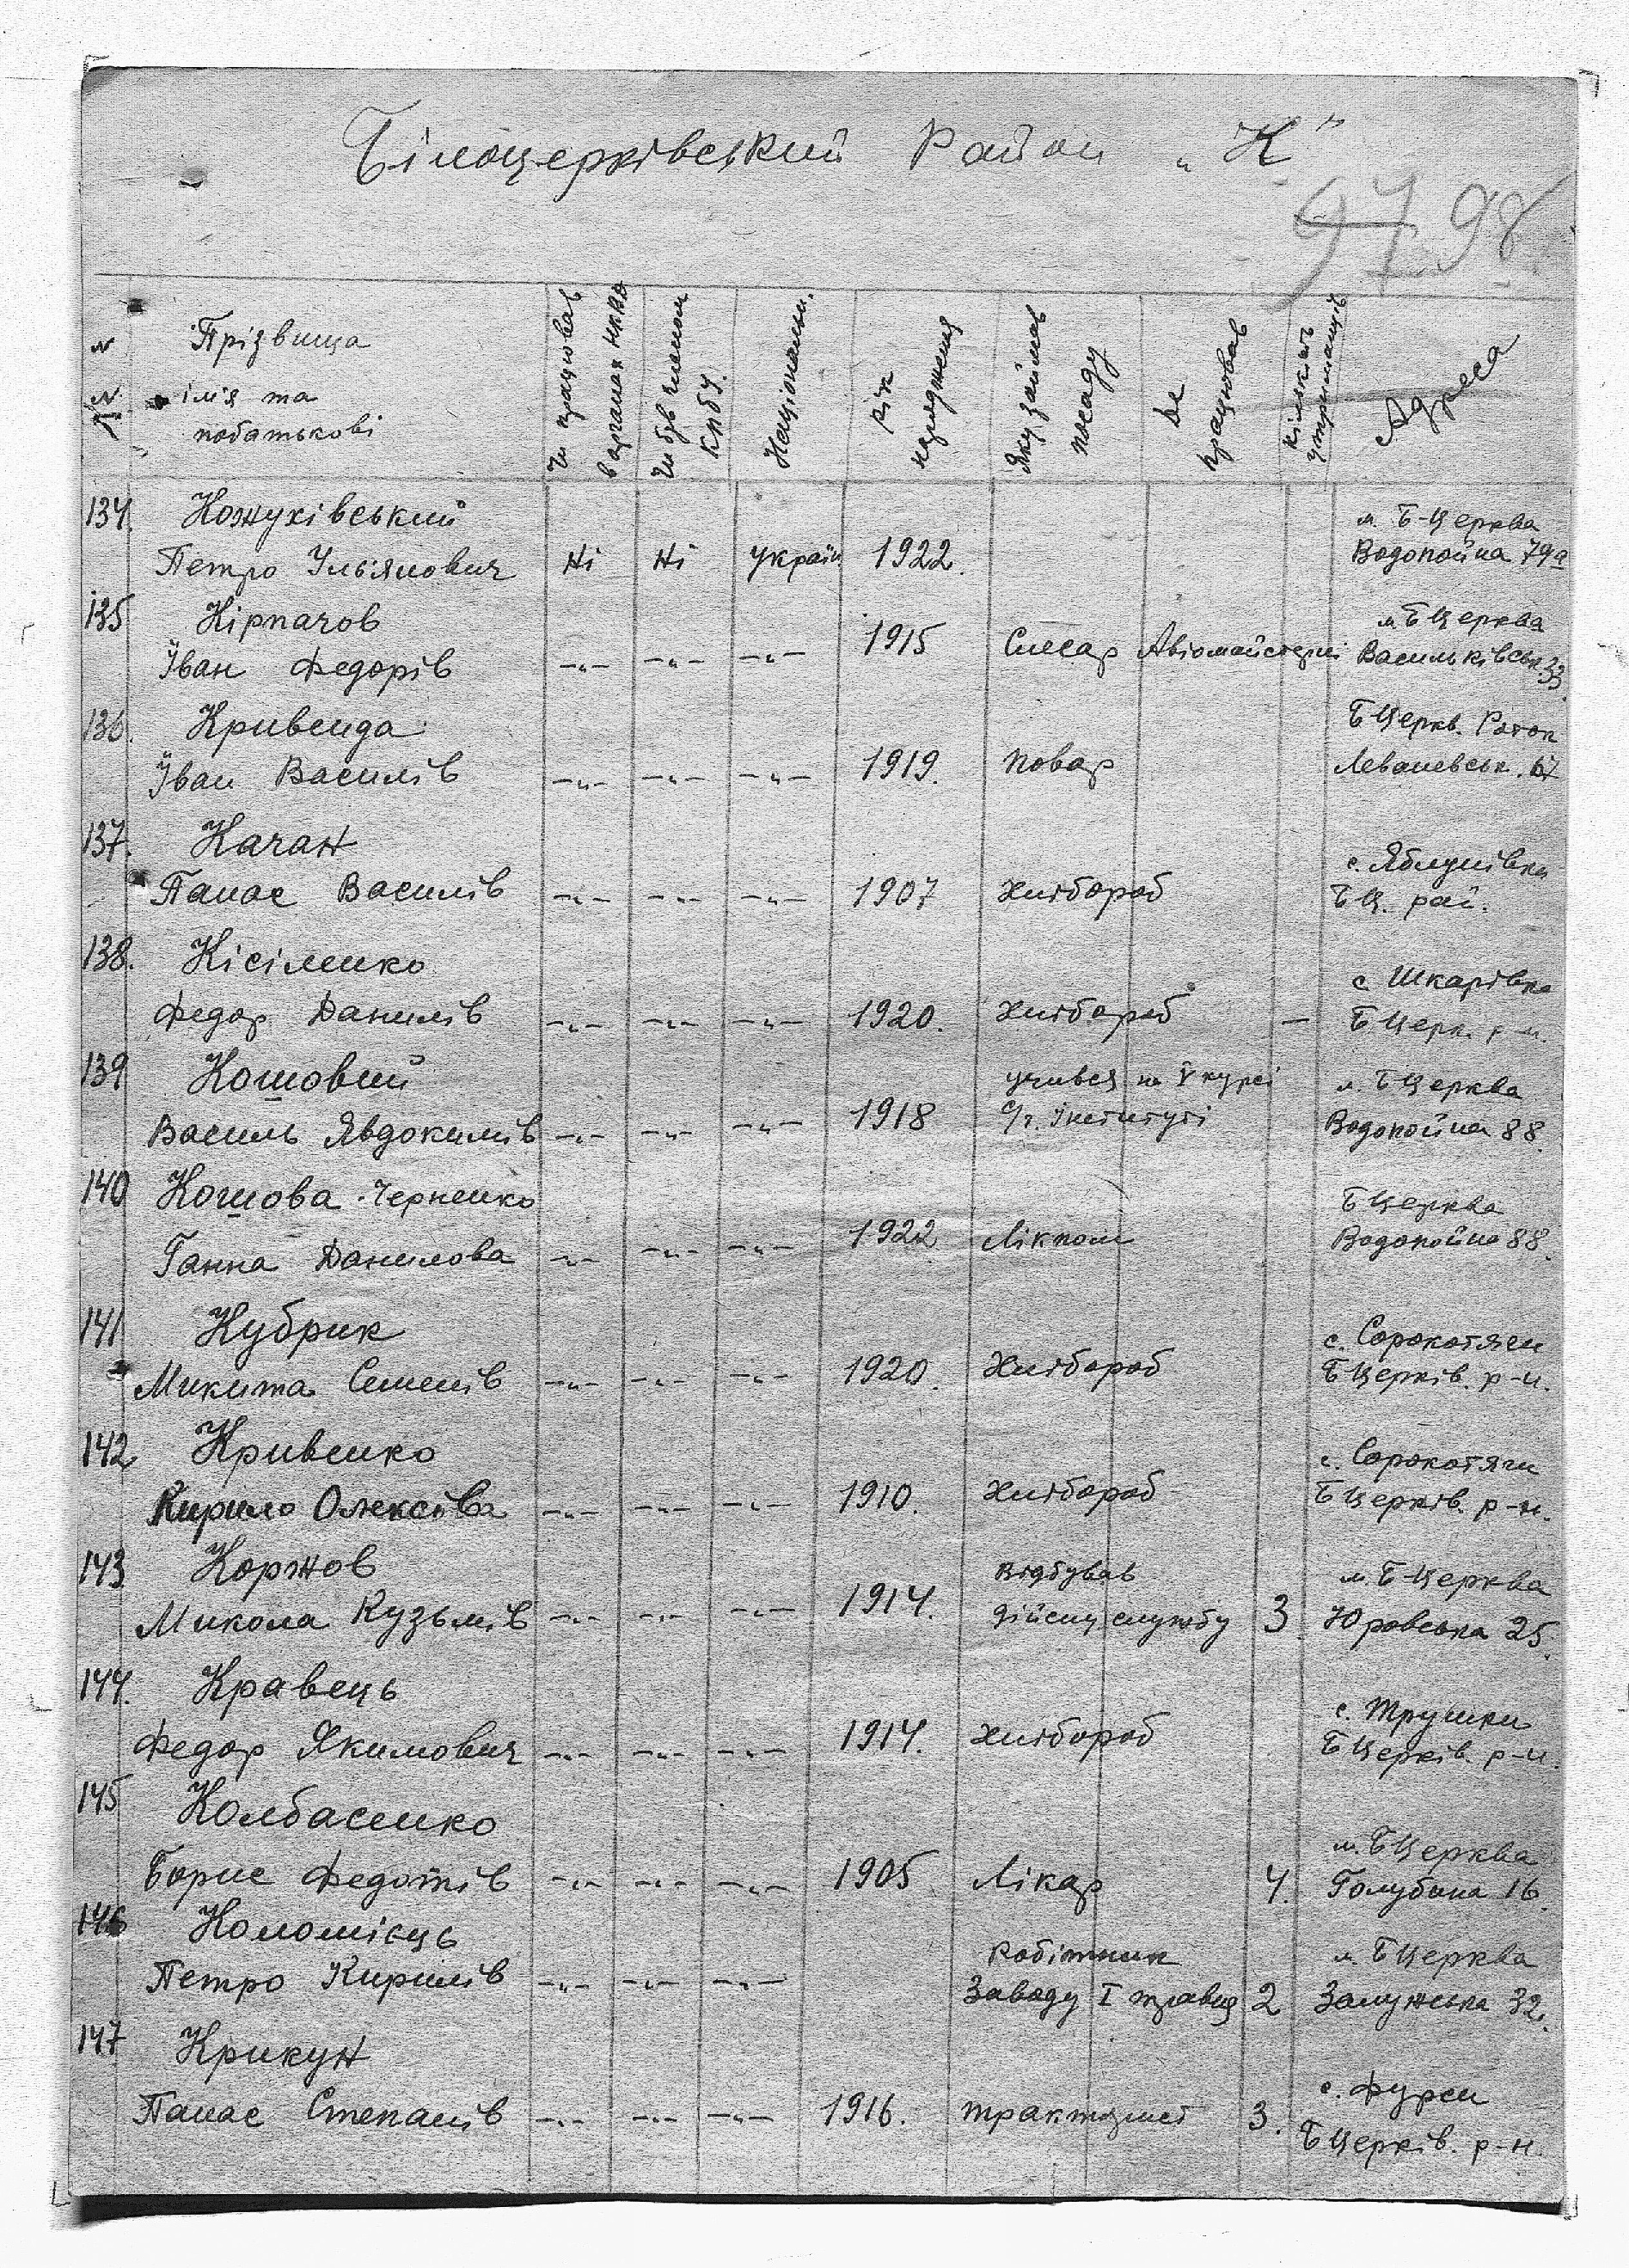 Білоцерківський Район „К"
97 98
N N
Прізвища
ім'я та
побатькові
Чи працював в органах НКВД
Чи був членом КПбУ.
Національн.
Рік народження
Яку займав посаду
Де працював
Кількість утриманців
Адреса
134. Кожухівський м. Б-Церква
Петро Ульянович Ні Ні україн. 1922. Водопойна 79а
135 Кірпачов м. БЦерква
Іван Федорів -"- -"- -"- 1915 Слесар Авіомайстерні Васильківськ. 33.
136. Кривенда БЦеркв. Роток
Іван Василів -"- -"- -"- 1919. Повар Леваневськ. 67
137. Качан с. Яблунівка
Панас Василів -"- -"- -"- 1907 Хлібороб БЦ. рай.
138. Кісіленко с. Шкарівка
Федор Данилів -"- -"- -"- 1920. Хлібороб — БЦерк. р-н.
139 Кошовий учився на V курсі м. БЦерква
Василь Явдокимів -"- -"- -"- 1918 С/г. Інституті Водопойна 88.
140 Кошова-Черненко БЦерква
Ганна Данилова -"- -"- -"- 1922 Лікпом Водопойна 88.
141 Кубрик с. Сорокотяги
Микита Семенів -"- -"- -"- 1920. Хлібороб БЦерків. р-н.
142 Кривенко с. Сорокотяги
Кирило Олексіва -"- -"- -"- 1910. Хлібороб БЦерків. р-н.
143 Коржов Відбував м. Б-Церква
Микола Кузьмів -"- -"- -"- 1914. дійсну службу 3 Юровська 25.
144. Кравець с. Трушки
Федор Якимович -"- -"- -"- 1914. Хлібороб БЦерків. р-н.
145 Колбасенко м. БЦерква
Борис Федотів -"- -"- -"- 1905 Лікар 4. Голубина 16.
146 Коломієць Робітник м. БЦерква
Петро Кирилів -"- -"- -"- Заводу І травня 2 Залужська 32.
147 Крикун с. Фурси
Панас Степанів -"- -"- -"- 1916. тракторист 3. БЦерків. р-н.